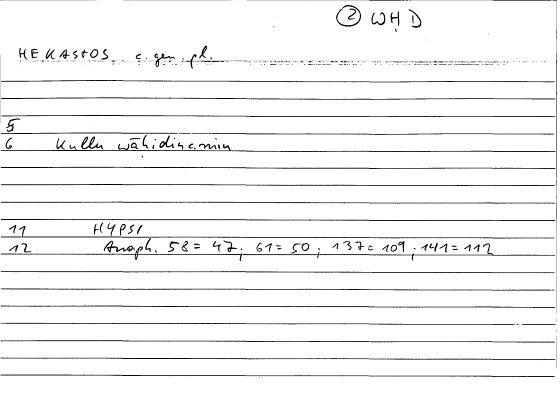 ② WḤD
HEKASTOS c. gen. pl.
5
6 kullu wāḥidin amin
11 HYPSI
12 Anaph. 58 = 47; 61 = 50; 137 = 109; 141 = 112